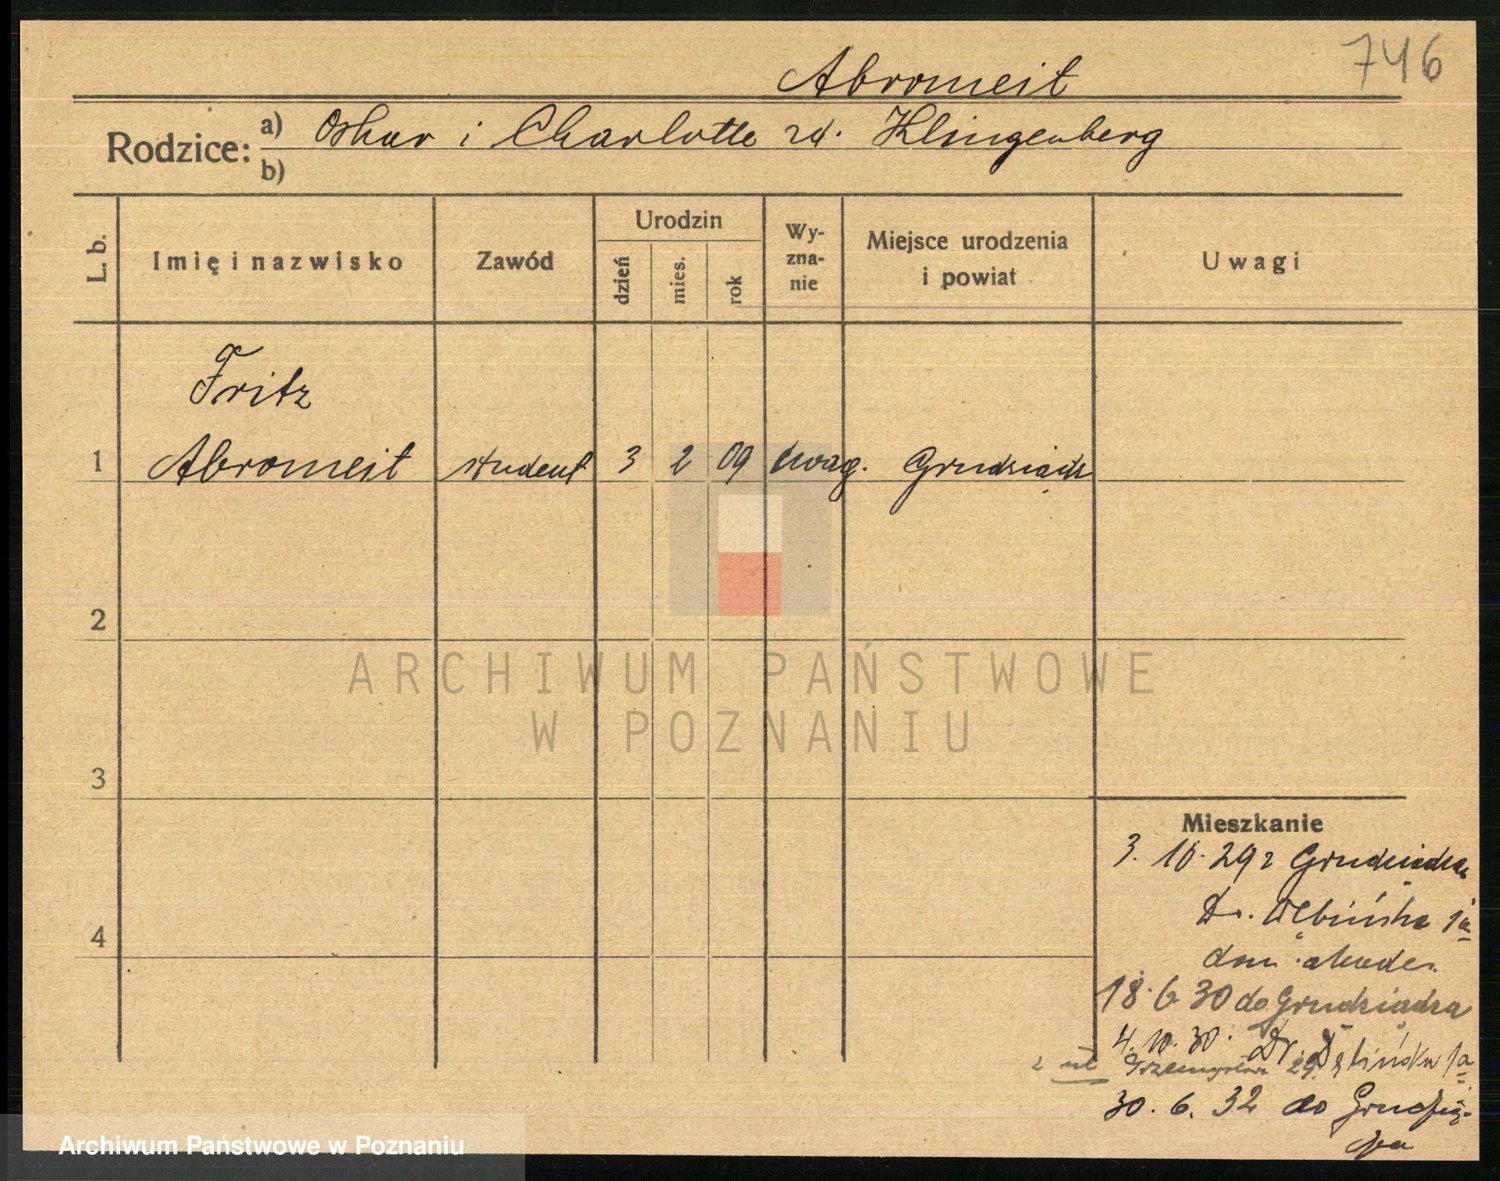 746
Abromeit
Rodzice: a) Oskar i Charlotte zd. Klingenberg
b)
L. b.
Imię i nazwisko
Zawód
Urodzin
dzień
mies.
rok
Wy-
zna-
nie
Miejsce urodzenia
i powiat
Uwagi
Fritz
1 Abromeit student 3 2 09 ewag. Grudziądz
2
3
4
ARCHIWUM PAŃSTWOWE
W POZNANIU
Mieszkanie
3. 10. 29 z Grudziądza
Dr. Dębińska 1a
dom akade.
18. 6 30 do Grudziądza
4. 10. 30. Dr. Dębińska 1a
z ul Przemysłowa 29.
30. 6. 32 do Grudzią-
dza
Archiwum Państwowe w Poznaniu